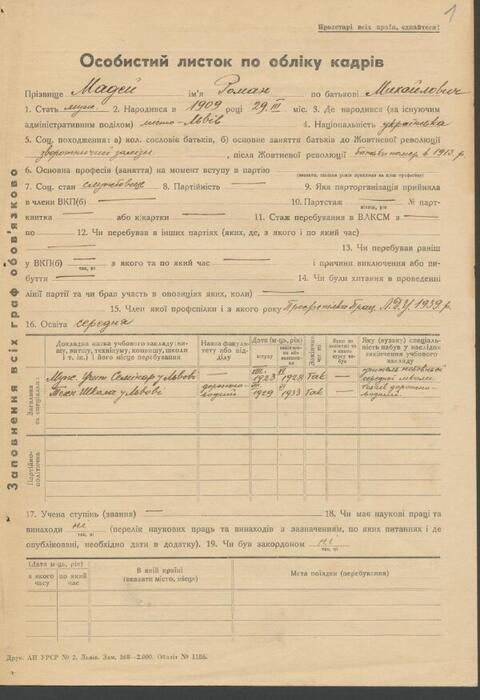 1
Пролетарі всіх країн, єднайтеся!
Особистий листок по обліку кадрів
Прізвище Мадей ім'я Роман по батькові Михайлович
1. Стать муж 2. Народився в 1909 році 29.III міс. 3. Де народився (за існуючим
адміністративним поділом) місто-Львів 4. Національність українська
5. Соц. походження: а) кол. сословів батьків, б) основне заняття батьків до Жовтневої революції
, після Жовтневої революції батько помер в 1913 р.
6. Основна професія (заняття) на момент вступу в партію —
7. Соц. стан службовець 8. Партійність — 9. Яка парторганізація прийняла
в члени ВКП(б) — 10. Партстаж — № парт-
місяць, рік
квитка — або к/картки — 11. Стаж перебування в ВЛКСМ з —
по — 12. Чи перебував в інших партіях (яких, де, з якого і по який час)
— 13. Чи перебував раніш
у ВКП(б) — з якого та по який час — і причини виключення або ви-
так, ні
буття — 14. Чи були хитання в проведенні
лінії партії та чи брав участь в опозиціях яких, коли) —
15. Член якої профспілки і з якого року Профспілка Прац. Л.Д.У. 1939 р.
16. Освіта середня
Заповнення всіх граф обов'язково
Докладна назва учбового закладу: ви-
шу, втишу, технікуму, комвишу, школи
і т. ін.) і його місце перебування
Назва факуль-
тету або від-
ділу
Дата (м-ць, рік)
вступу
закінчен-
ня або вибуття
Закінчив чи ні
Якщо не закінчив то з якого курсу вибув
Яку (вузьку) спеціальність набув у наслідок закінчення учбового закладу
Загальна та спеціальна
Муж. Учит. Семінар у Львові — VIII. 1923 VI 1928 Так — учитель
середньої школи
Техн. Школа у Львові дорожно-водний IX 1929 VI 1933 Так — дорожно-водний.
Партійно-політична
17. Учена ступінь (звання) — 18. Чи має наукові праці та
винаходи ні (перелік наукових праць та винаходів з зазначенням, по яких питаннях і де
так, ні
опубліковані, необхідно дати в додатку). 19. Чи був закордоном ні
так, ні
(Дата м-ць, рік)
з якого часу
по який час
В якій країні
(вказати місто, місце)
Мета поїздки (перебування)
Друк. АН УРСР № 2, Львів. Зам. 368—2.000. Обліт № 1186.